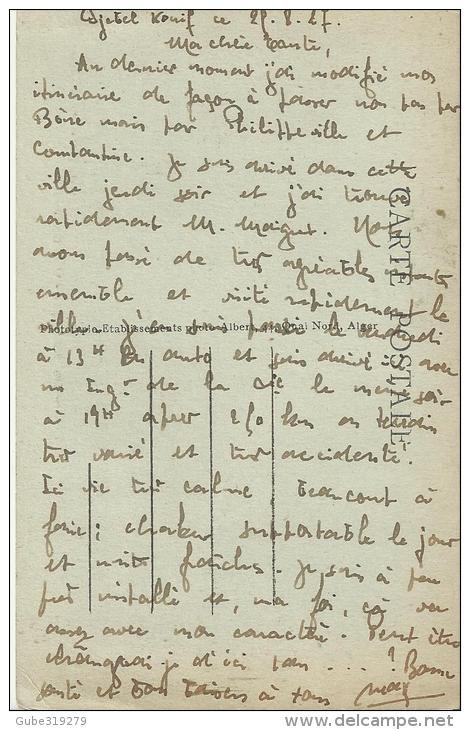 Djebel Kouif le 28.8.27.
Ma chère Tante,
Au dernier moment j'ai modifié mon
itinéraire de façon à passer non pas par
Bône mais par Philippeville et
Constantine. Je suis arrivé dans cette
ville jeudi soir et j'ai trouvé
rapidement M. Maigret. Nous
avons passé de très agréables
ensemble et visité rapidement le
ville j'en suis parti le
à 13H En auto et suis arrivé ici avec
un Ingr de la Cie le même soir
à 19H après 250 km en terrain
très varié et très accidenté.
Ici vie très calme, beaucoup à
faire; chaleur supportable le jour
et nuits fraîches. Je suis à peu
près installé et, ma foi, çà va
assez avec mon caractère. Peut être
changerai je d'ici tans ... ? Bonne
santé et bons baisers à tous
CARTE POSTALE
Phototypie-Etablissements photo-Albert, Quai Nord, Alger
Gube319279